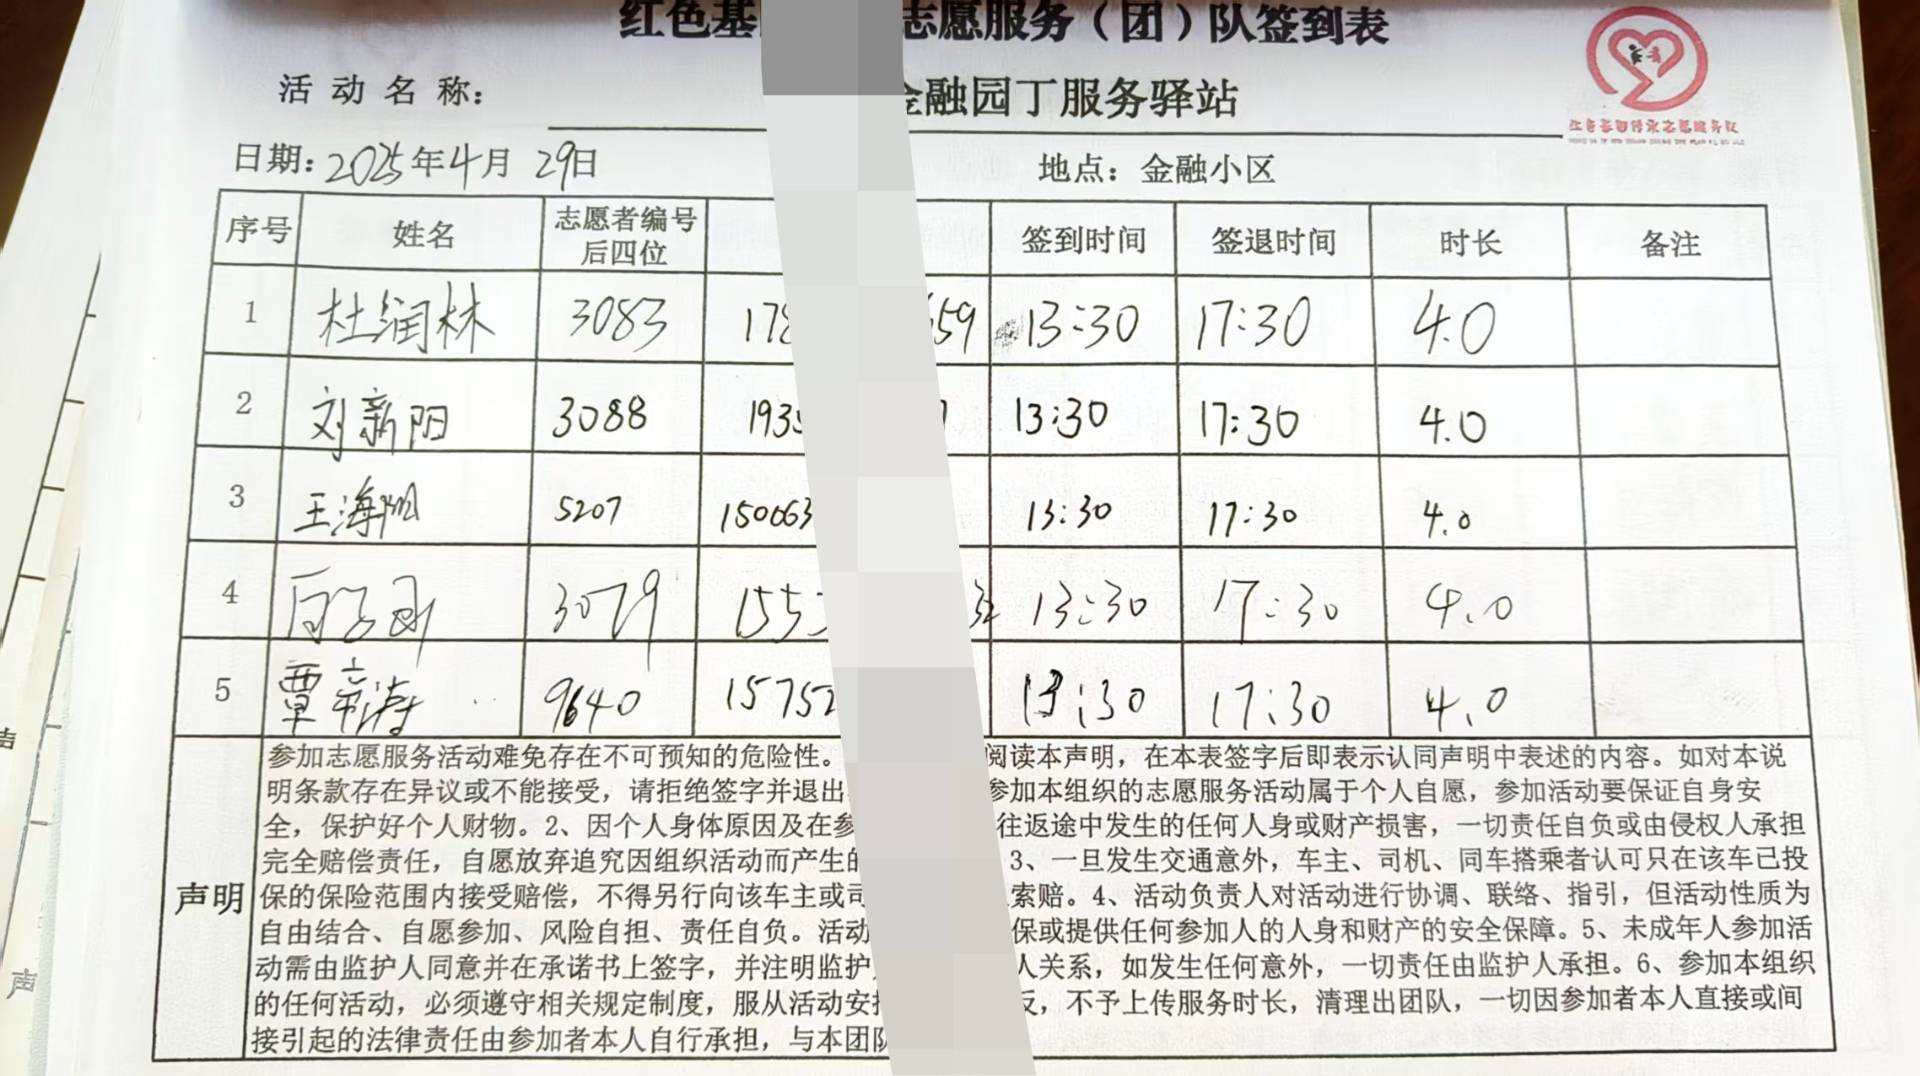 红色基 志愿服务（团）队签到表
活动名称： 金融园丁服务驿站
日期：2025年4月29日 地点：金融小区
序号 姓名 志愿者编号后四位 签到时间 签退时间 时长 备注
1 杜润林 3083 178 659 13:30 17:30 4.0
2 刘新阳 3088 193 13:30 17:30 4.0
3 王海 5207 150063 13:30 17:30 4.0
4 3079 155 13:30 17:30 4.0
5 覃 涛 9640 15752 13:30 17:30 4.0
声明
参加志愿服务活动难免存在不可预知的危险性。 阅读本声明，在本表签字后即表示认同声明中表述的内容。如对本说
明条款存在异议或不能接受，请拒绝签字并退出 参加本组织的志愿服务活动属于个人自愿，参加活动要保证自身安
全，保护好个人财物。2、因个人身体原因及在参 往返途中发生的任何人身或财产损害，一切责任自负或由侵权人承担
完全赔偿责任，自愿放弃追究因组织活动而产生的 3、一旦发生交通意外，车主、司机、同车搭乘者认可只在该车已投
保的保险范围内接受赔偿，不得另行向该车主或司 索赔。4、活动负责人对活动进行协调、联络、指引，但活动性质为
自由结合、自愿参加、风险自担、责任自负。活动 保或提供任何参加人的人身和财产的安全保障。5、未成年人参加活
动需由监护人同意并在承诺书上签字，并注明监护 人关系，如发生任何意外，一切责任由监护人承担。6、参加本组织
的任何活动，必须遵守相关规定制度，服从活动安 反，不予上传服务时长，清理出团队，一切因参加者本人直接或间
接引起的法律责任由参加者本人自行承担，与本团队